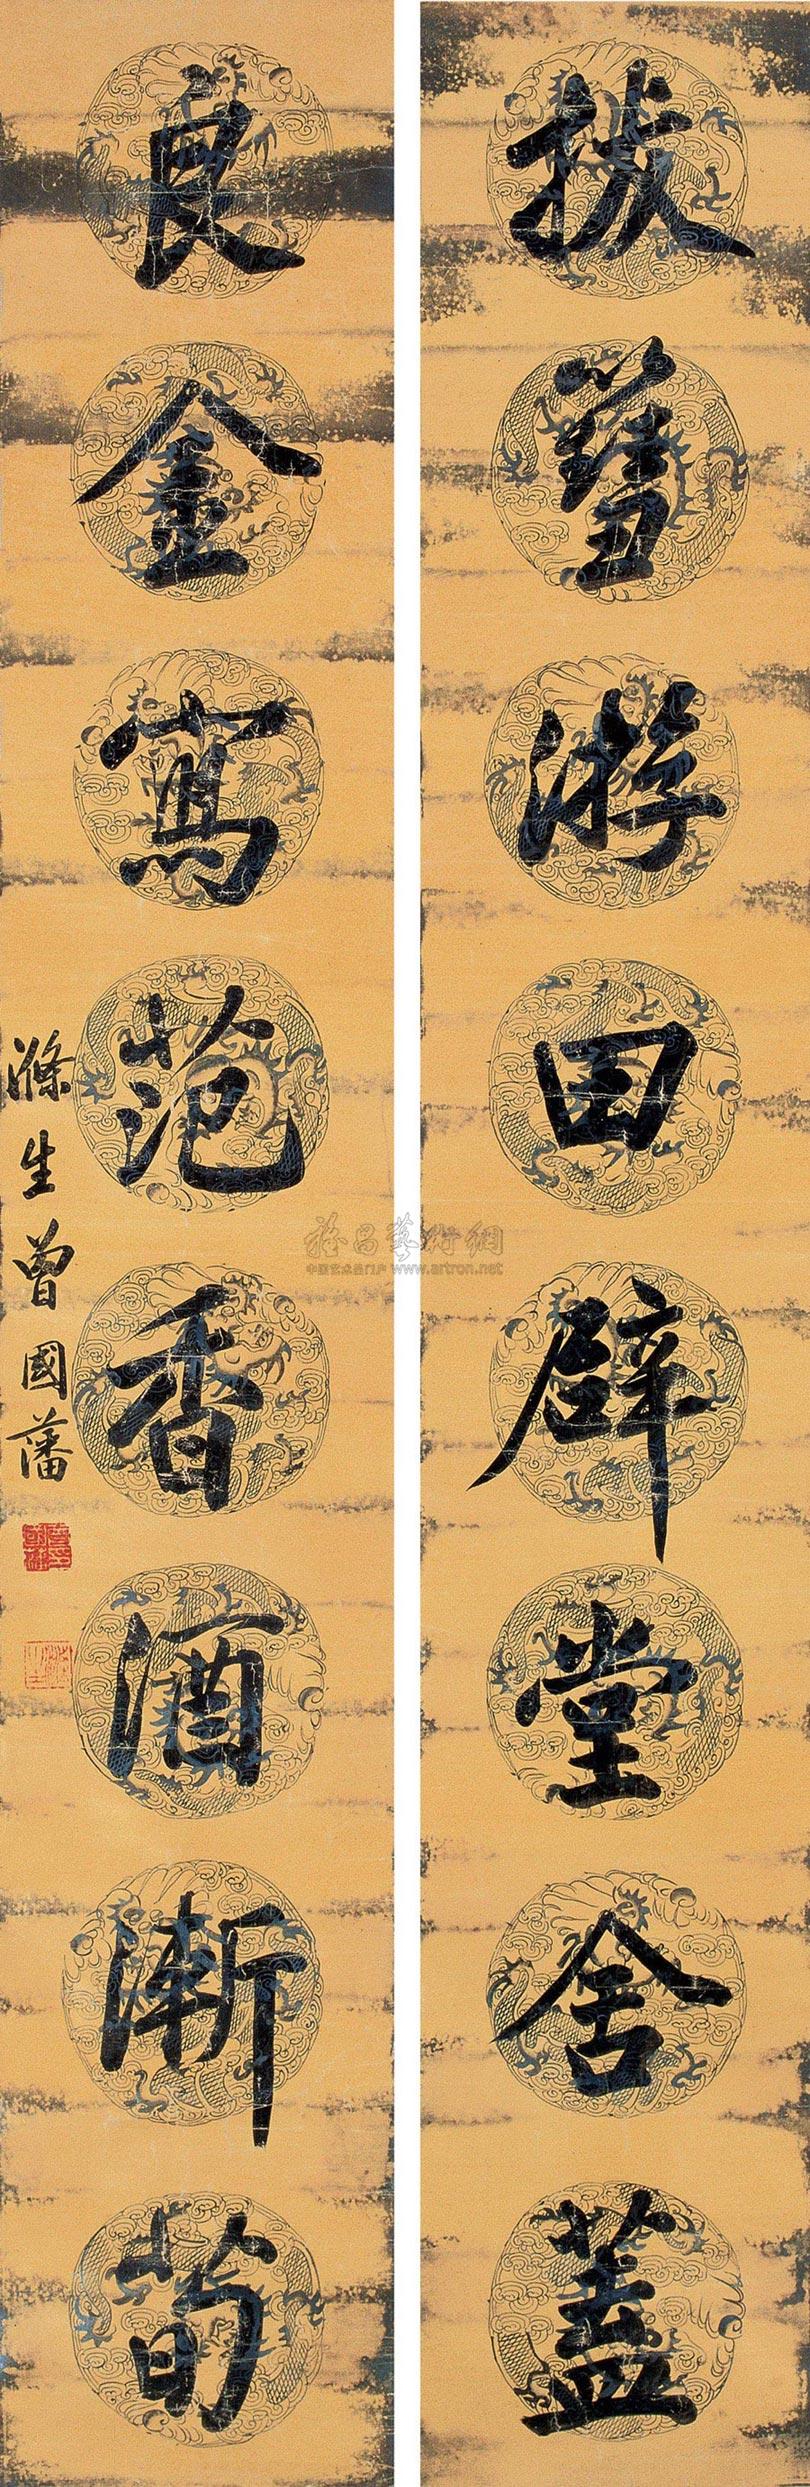 拔蔧游田辟堂舍蓋
良金寫范香酒漸荀
滌生曾國藩
雅昌藝術網
中国艺术品门户 www.artron.net